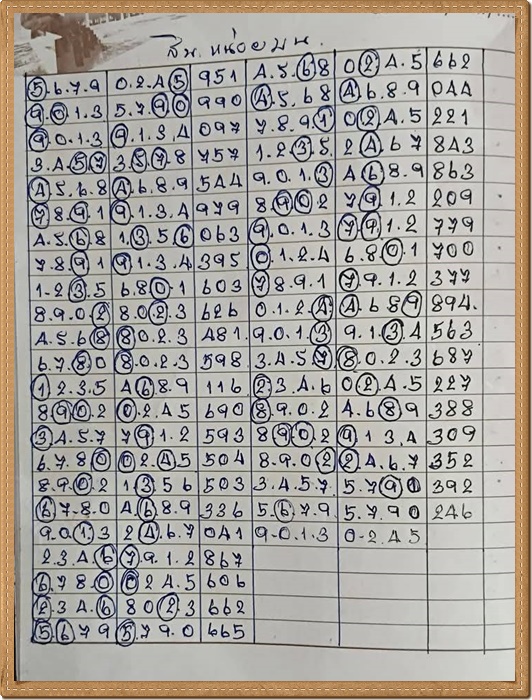 สิบ. หน่วยบน.
5.6.7.9 0.2.4.5 951 4.5.6.8 0.2.4.5 662
9.0.1.3 5.7.9.0 990 4.5.6.8 4.6.8.9 044
9.0.1.3 9.1.3.4 097 7.8.9.1 0.2.4.5 221
3.4.5.7 3.5.7.8 757 1.2.3.5 2.4.6.7 843
4.5.6.8 4.6.8.9 544 9.0.1.3 4.6.8.9 863
7.8.9.1 9.1.3.4 979 8.9.0.2 7.9.1.2 209
4.5.6.8 1.3.5.6 063 9.0.1.3 7.9.1.2 779
7.8.9.1 9.1.3.4 395 0.1.2.4 6.8.0.1 700
1.2.3.5 6.8.0.1 603 7.8.9.1 7.9.1.2 377
8.9.0.2 8.0.2.3 626 0.1.2.4 4.6.8.9 894.
4.5.6.8 8.0.2.3 481. 9.0.1.3 9.1.3.4 563
6.7.8.0 8.0.2.3 598 3.4.5.7 8.0.2.3 687
1.2.3.5 4.6.8.9 116 2.3.4.6 0.2.4.5 227
8.9.0.2 0.2.4.5 690 8.9.0.2 4.6.8.9 388
3.4.5.7 7.9.1.2 593 8.9.0.2 9.1.3.4 309
6.7.8.0 0.2.4.5 504 8.9.0.2 2.4.6.7 352
8.9.0.2 1.3.5.6 503 3.4.5.7 5.7.9.0 392
6.7.8.0 4.6.8.9 336 5.6.7.9 5.7.9.0 246
9.0.1.3 2.4.6.7 041 9.0.1.3 0.2.4.5
2.3.4.6 7.9.1.2 867
6.7.8.0 0.2.4.5 606
2.3.4.6 8.0.2.3 662
5.6.7.9 5.7.9.0 665